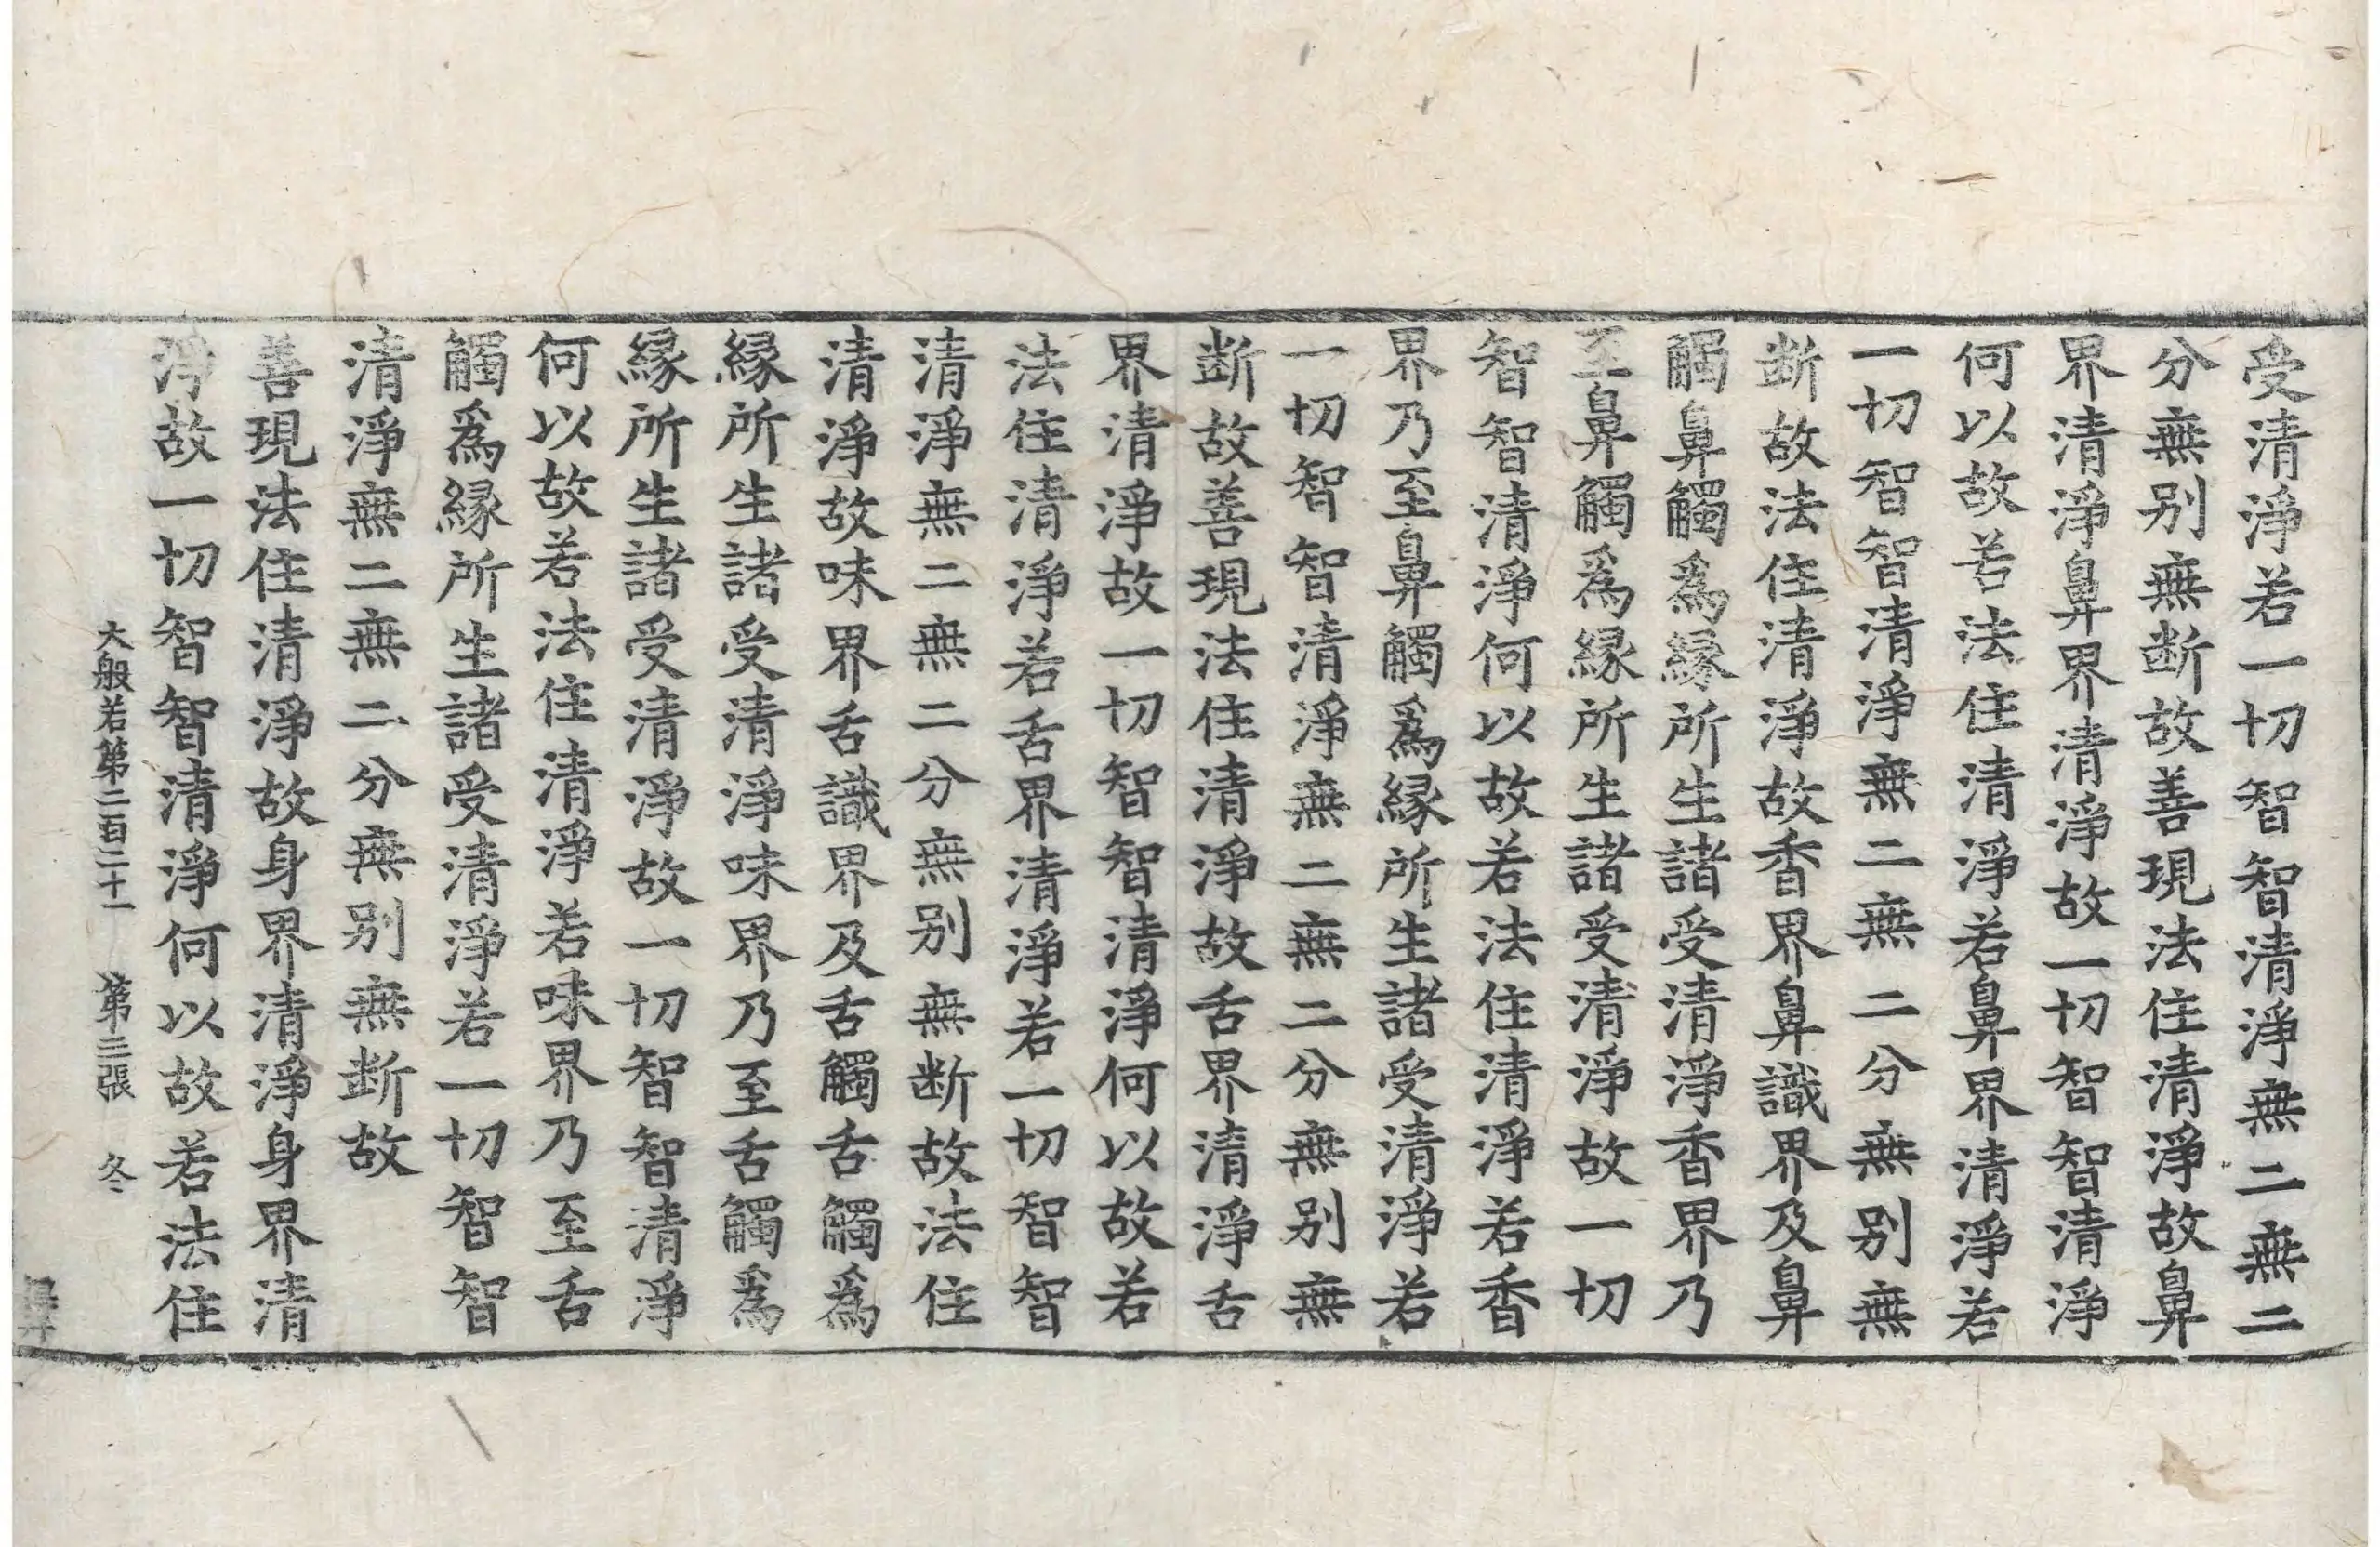 受清淨若一切智智清淨無二無二
分無别無断故善現法住清淨故鼻
界清淨鼻界清淨故一切智智清淨
何以故若法住清淨若鼻界清淨若
一切智智清淨無二無二分無别無
断故法住清淨故香界鼻識界及鼻
觸鼻觸爲緣所生諸受清淨香界乃
至鼻觸爲緣所生諸受清淨故一切
智智清淨何以故若法住清淨若香
界乃至鼻觸爲緣所生諸受清淨若
一切智智清淨無二無二分無别無
断故善現法住清淨故舌界清淨舌
界清淨故一切智智清淨何以故若
法住清淨若舌界清淨若一切智智
清淨無二無二分無别無断故法住
清淨故味界舌識界及舌觸舌觸爲
緣所生諸受清淨味界乃至舌觸爲
緣所生諸受清淨故一切智智清淨
何以故若法住清淨若味界乃至舌
觸爲緣所生諸受清淨若一切智智
清淨無二無二分無别無断故
善現法住清淨故身界清淨身界清
淨故一切智智清淨何以故若法住
大般若第二百二十一 第三張 冬